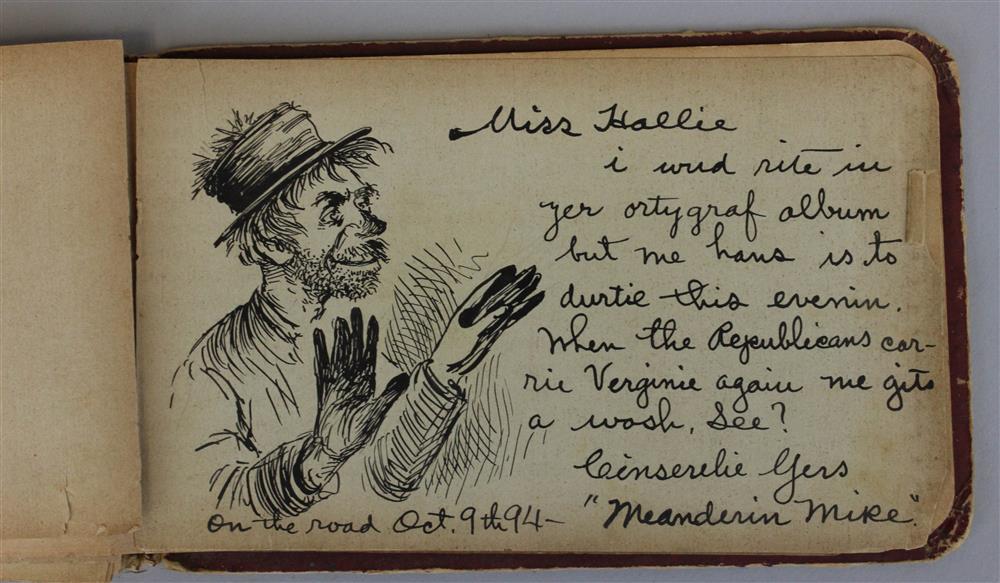 Miss Hallie
i wud rite in
yer ortygraf album
but me hans is to
durtie this evenin.
When the Republicans car-
rie Verginie again me gits
a wosh, See?
Cinserelie Yers
"Meanderin Mike."
On the road Oct. 9th 94—